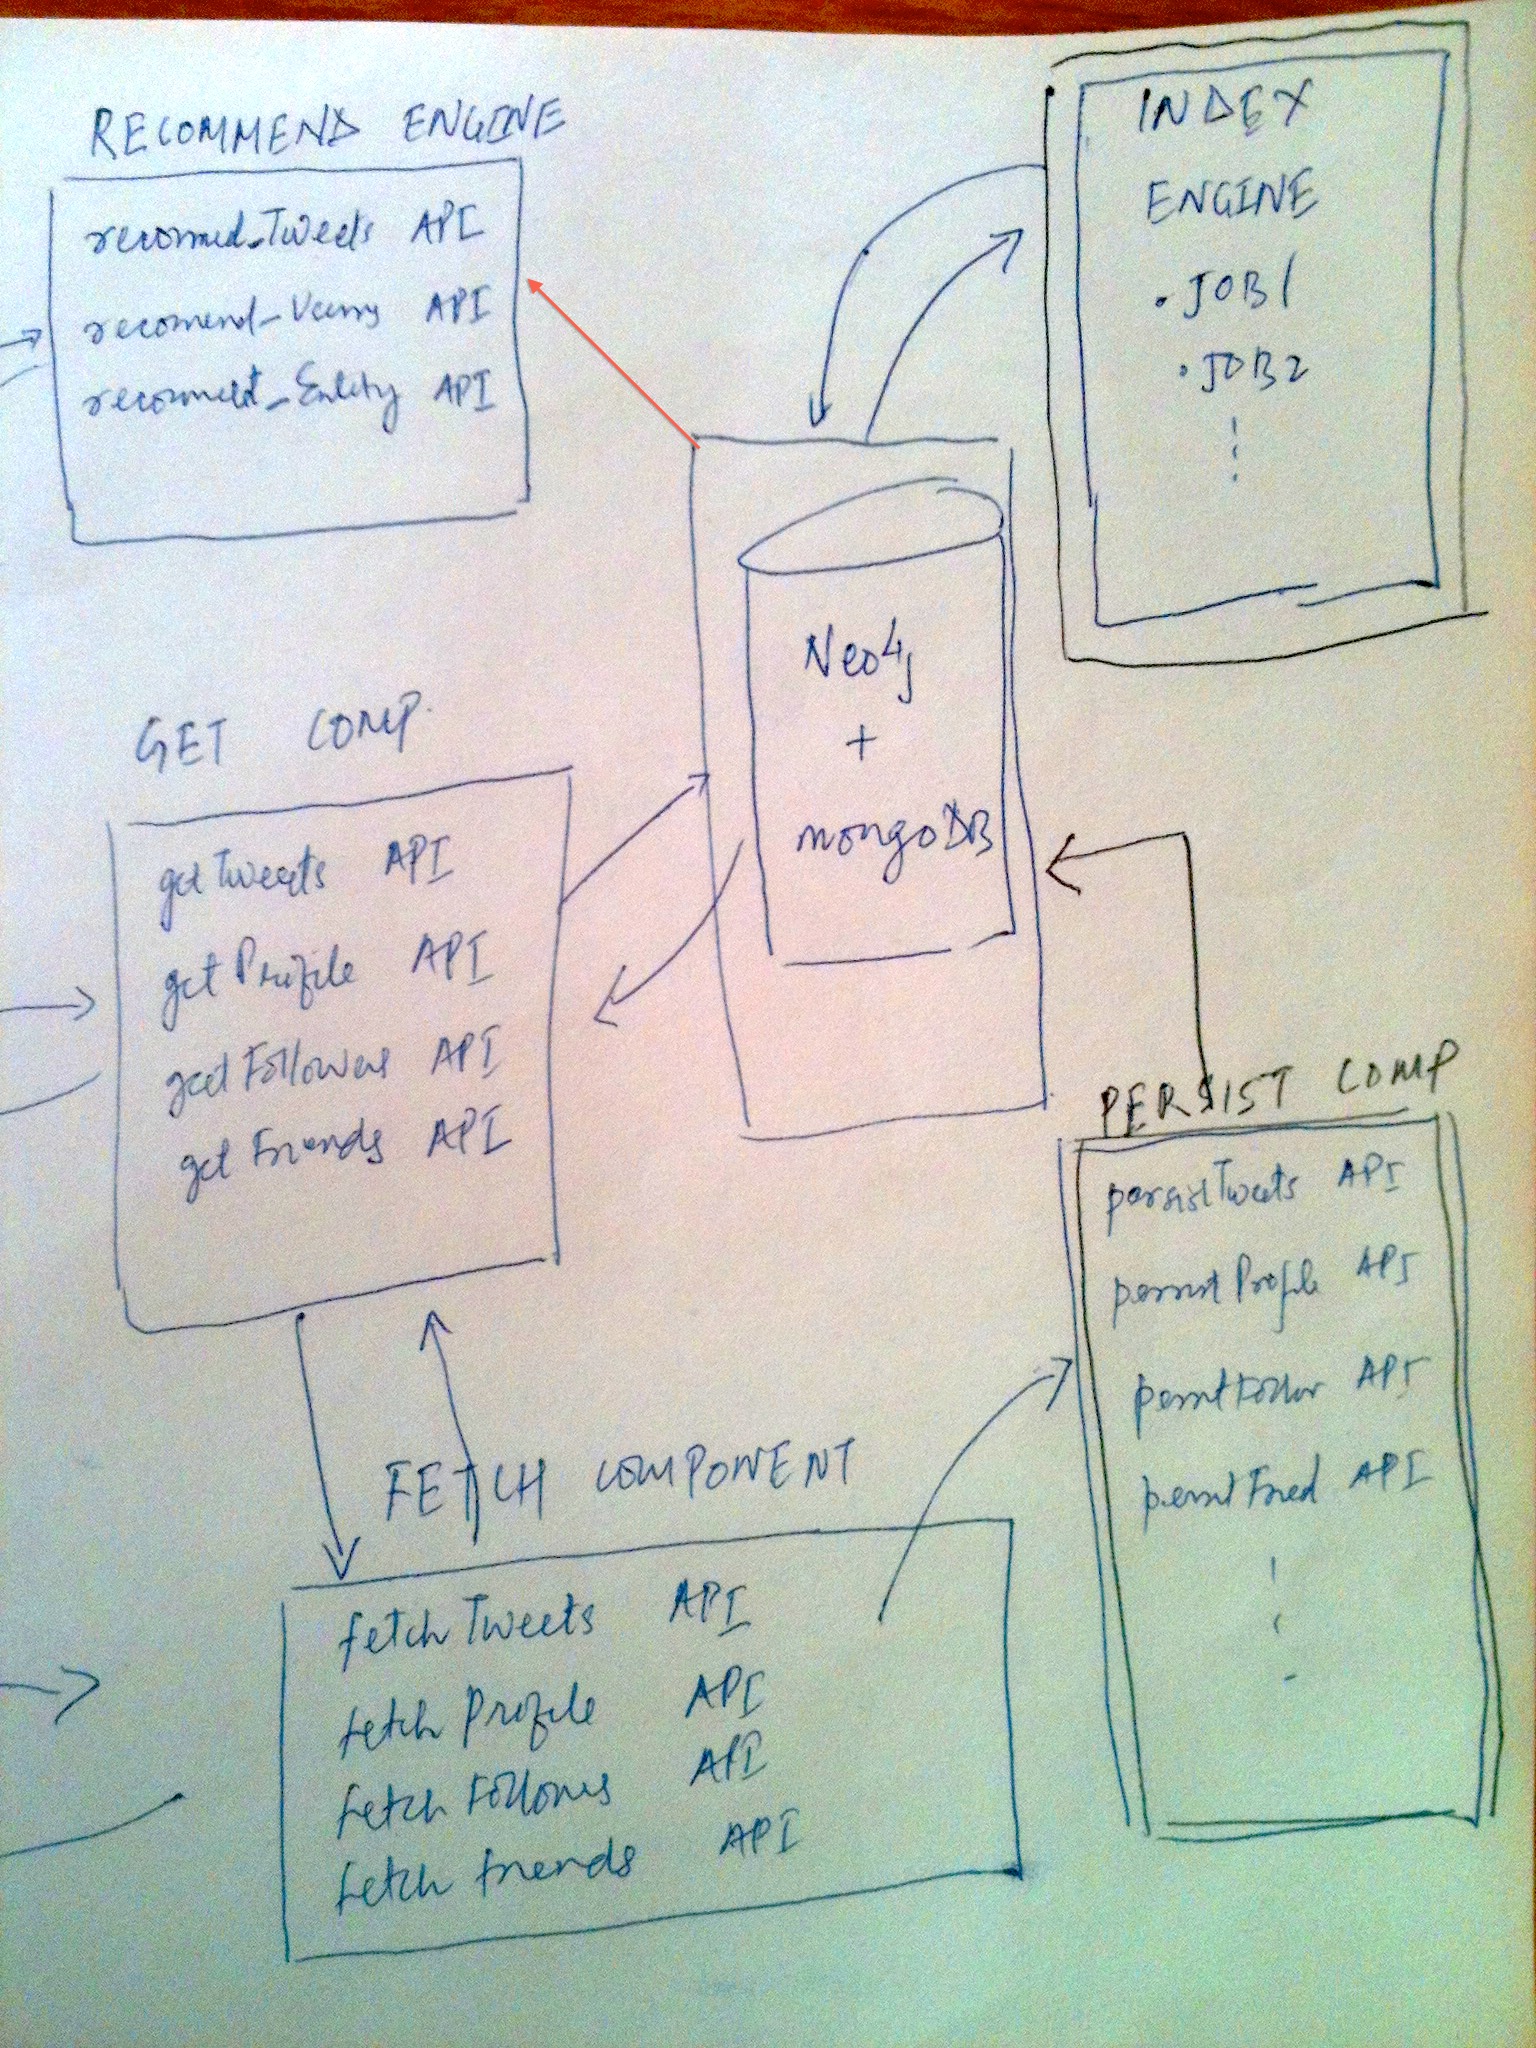 RECOMMEND ENGINE
recomed_Tweets API
recomend_ API
API
INDEX
ENGINE
. JOB1
. JOB2
Neo4j
+
mongoDB
GET COMP.
getTweets API
getProfile API
getFollowers API
getFriends API
PERSIST COMP
persistTweets API
persist Profile API
API
API
FETCH COMPONENT
fetchTweets API
fetch Profile API
fetch API
fetch friends API